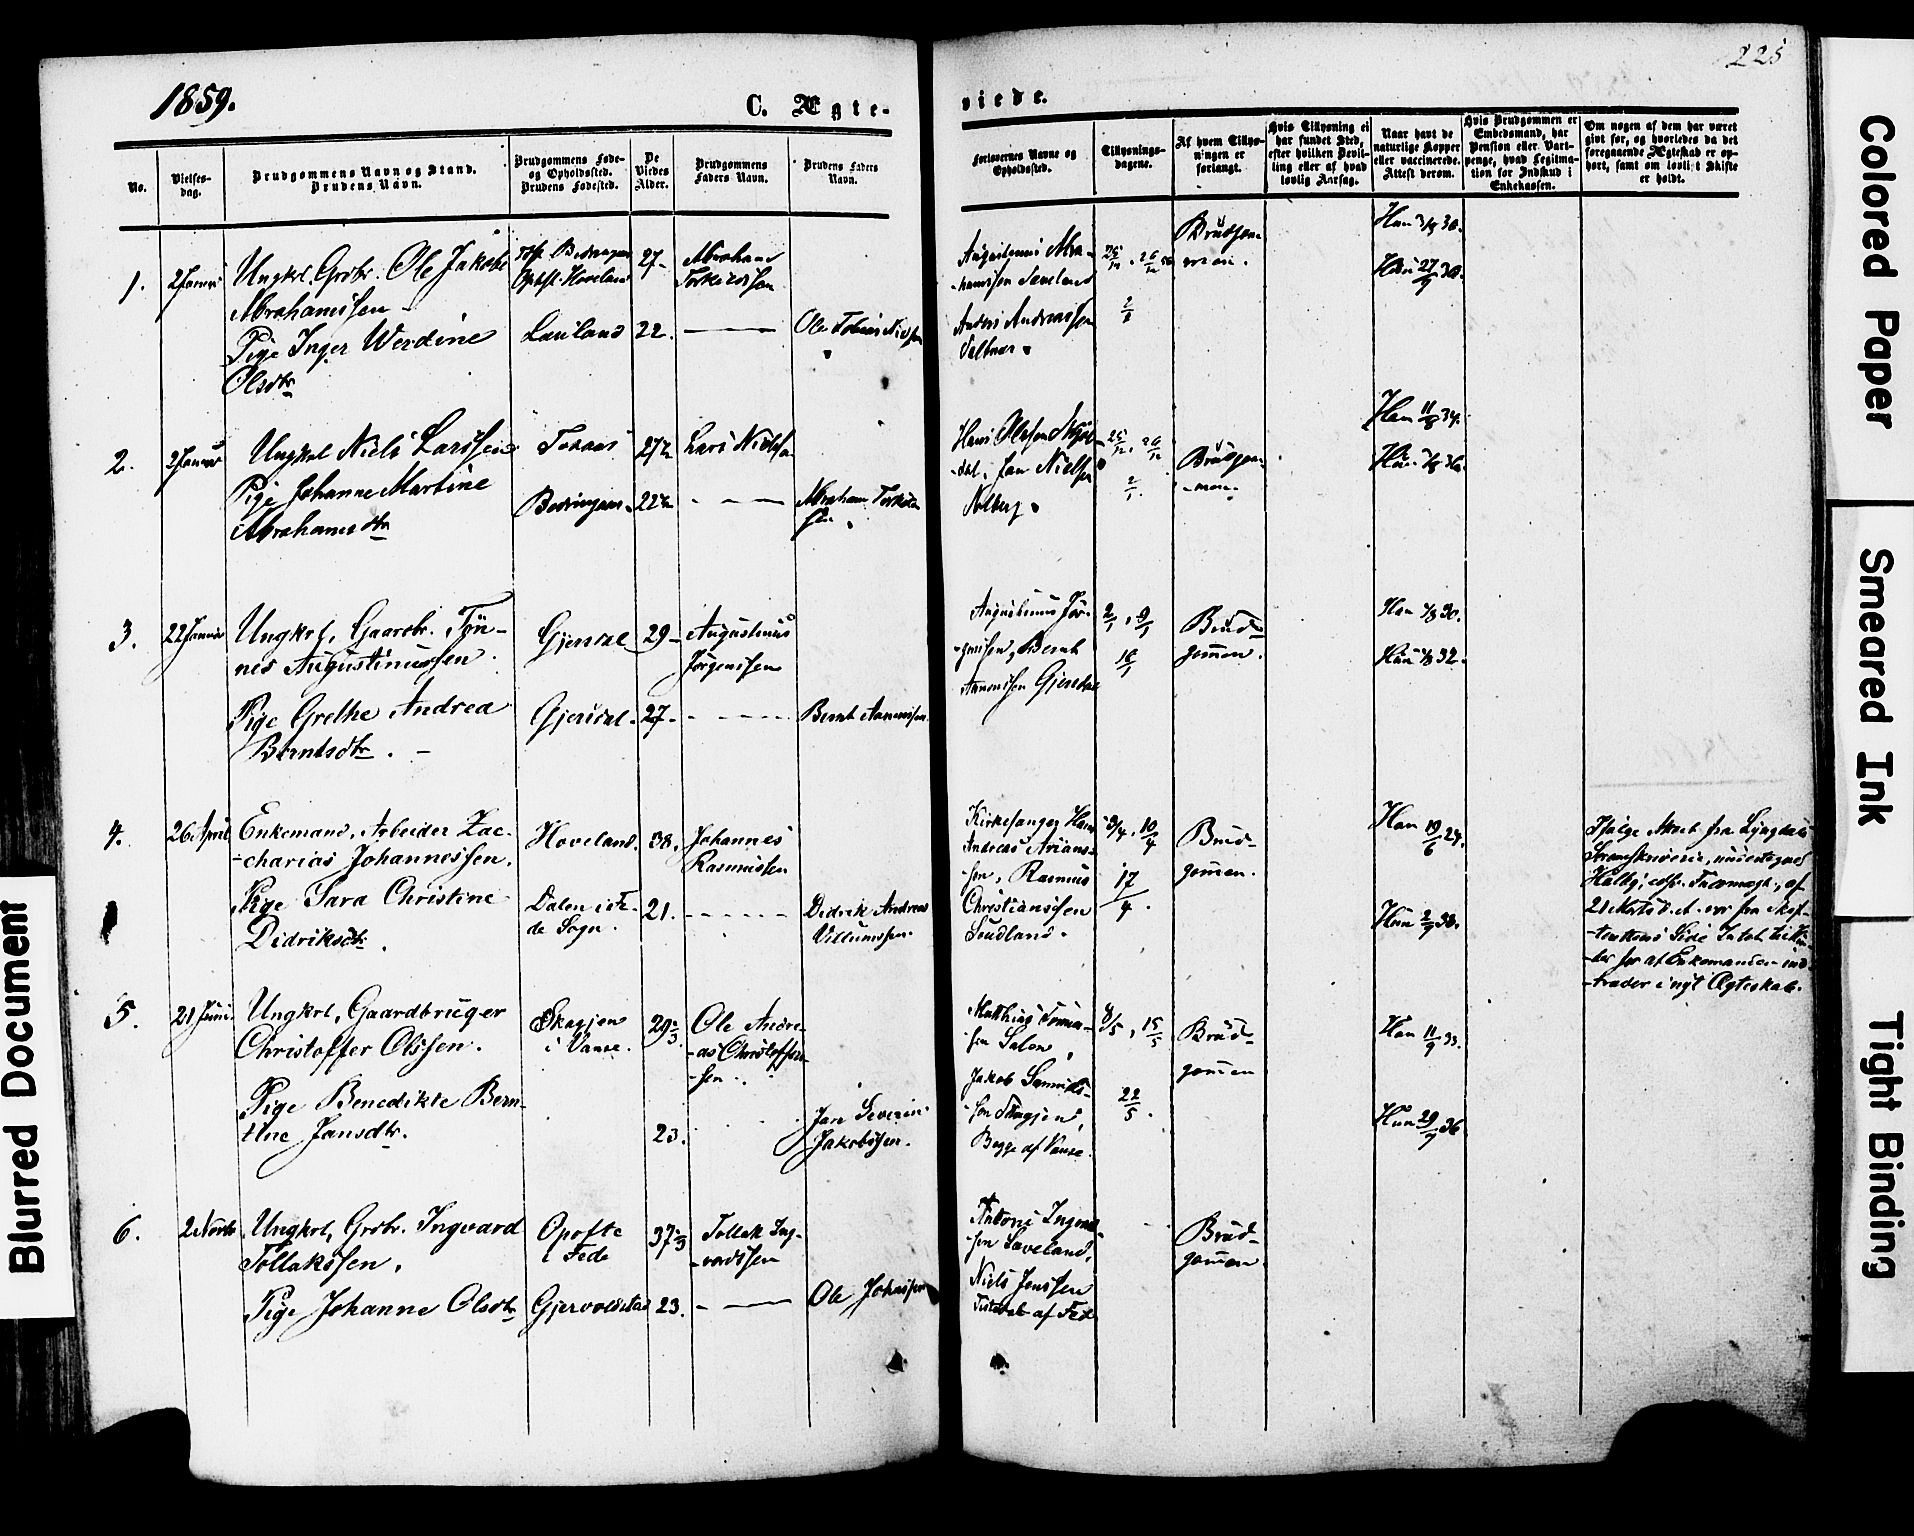 225
1859.
C. Ægteviede.
No.
Vielses-
dag.
Brudgommens Navn og Stand.
Brudens Navn.
Brudgommens Føde-
og Opholdssted.
Brudens Fødested.
De
Viedes
Alder.
Brudgommens
Faders Navn.
Brudens Faders
Navn.
Forlovernes Navne og
Opholdssted.
Tillysnings-
dagene.
Af hvem Tillys-
ningen er
forlangt.
Hvis Tillysning ei
har fundet Sted,
efter hvilken Bevil-
ling eller af hvad
lovlig Aarsag.
Naar havt de
naturlige Kopper
eller vaccinerede.
Attest derom.
Hvis Brudgommen er
Embedsmand, har
Pension eller Vart-
penge, hvad Legitima-
tion for Indskud i
Enkekassen.
Om nogen af dem har været
gift før, og hvorledes da det
foregaaende Ægteskab er op-
hørt, samt om lovligt Skifte
er holdt.
1.
2 Januar
Ungkrl. Grdbr. Ole Jakob
Abrahamssen
Pige Inger Werdine
Olsdtr
Opst. Hoveland
Lauland
27
22.
Abraham
Torkildssen
Ole Tobias Nielsen
Anders Andreassen
Brudgom-
men.
Han
Hun 27/9 38.
2.
2 Januar
Ungkrl Niels Larssen
Pige Johanne Martine
Abrahamsdtr
27½
22½
Lars Nielssen
Abraham Torkild-
sen.
Hans Olessen
Jan Nielssen
Brudgom-
men.
Han 11/8 34.
Hun
3.
22 Januar
Ungkrl. Gaardbr. Tøn-
nes Augustinussen.
Pige Grethe Andrea
Berntsdtr.
Gjersdal
Gjersdal.
29
27
Augustinus
Jørgenssen
Bernt Aanenssen
Augustinus Jør-
genssen, Bernt
Aanenssen Gjersdal
2/1, 9/1
16/1
Brud-
gommen.
Han 30.
Hun 32.
4.
26 April
Enkemand, Arbeider Zac-
charias Johannessen.
Pige Sara Christine
Didriksdtr.
Hoveland.
Dalen i Fe-
de Sogn.
38.
21.
Johannes
Rasmussen
Didrik Andreas
Villumssen
Kirkesanger Hans
Andreas
sen, Rasmus
Christianssen
Sundland.
3/4, 10/4
17/4.
Brud-
gommen.
Han 19/6 24.
Hun 2/9 38.
Ifølge Attest fra Lyngdals
Sorenskriverie, undertegnet
21 Marts d. A. er fra Skif-
tets Side Intet til Hin-
der for at Enkemanden ind-
træder i nyt Ægteskab.
5.
21 Juni
Ungkrl, Gaardbruger
Christoffer Olssen.
Pige Benedikte Bern-
tine Jansdtr.
Skagjen
i Vanse.
29
23.
Ole Andre-
as Christoffer-
sen.
Jan Severin
Jakobssen.
Matthias
Jakob
sen Skagjen,
Begge af Vanse.
8/5, 15/5
22/5.
Brud-
gommen
Han 11/9 33.
Hun 29/9 36
6.
2 Novbr
Ungkrl, Grdbr. Ingvard
Tollakssen.
Pige Johanne Olsdtr
Opofte
i Fede
Gjervoldstad
37
23.
Tollak Ing-
vardssen
Ole Johnssen
Niels Jenssen
af Fede
Brud-
gommen.
Colored Paper
Smeared Ink
Tight Binding
Blurred Document